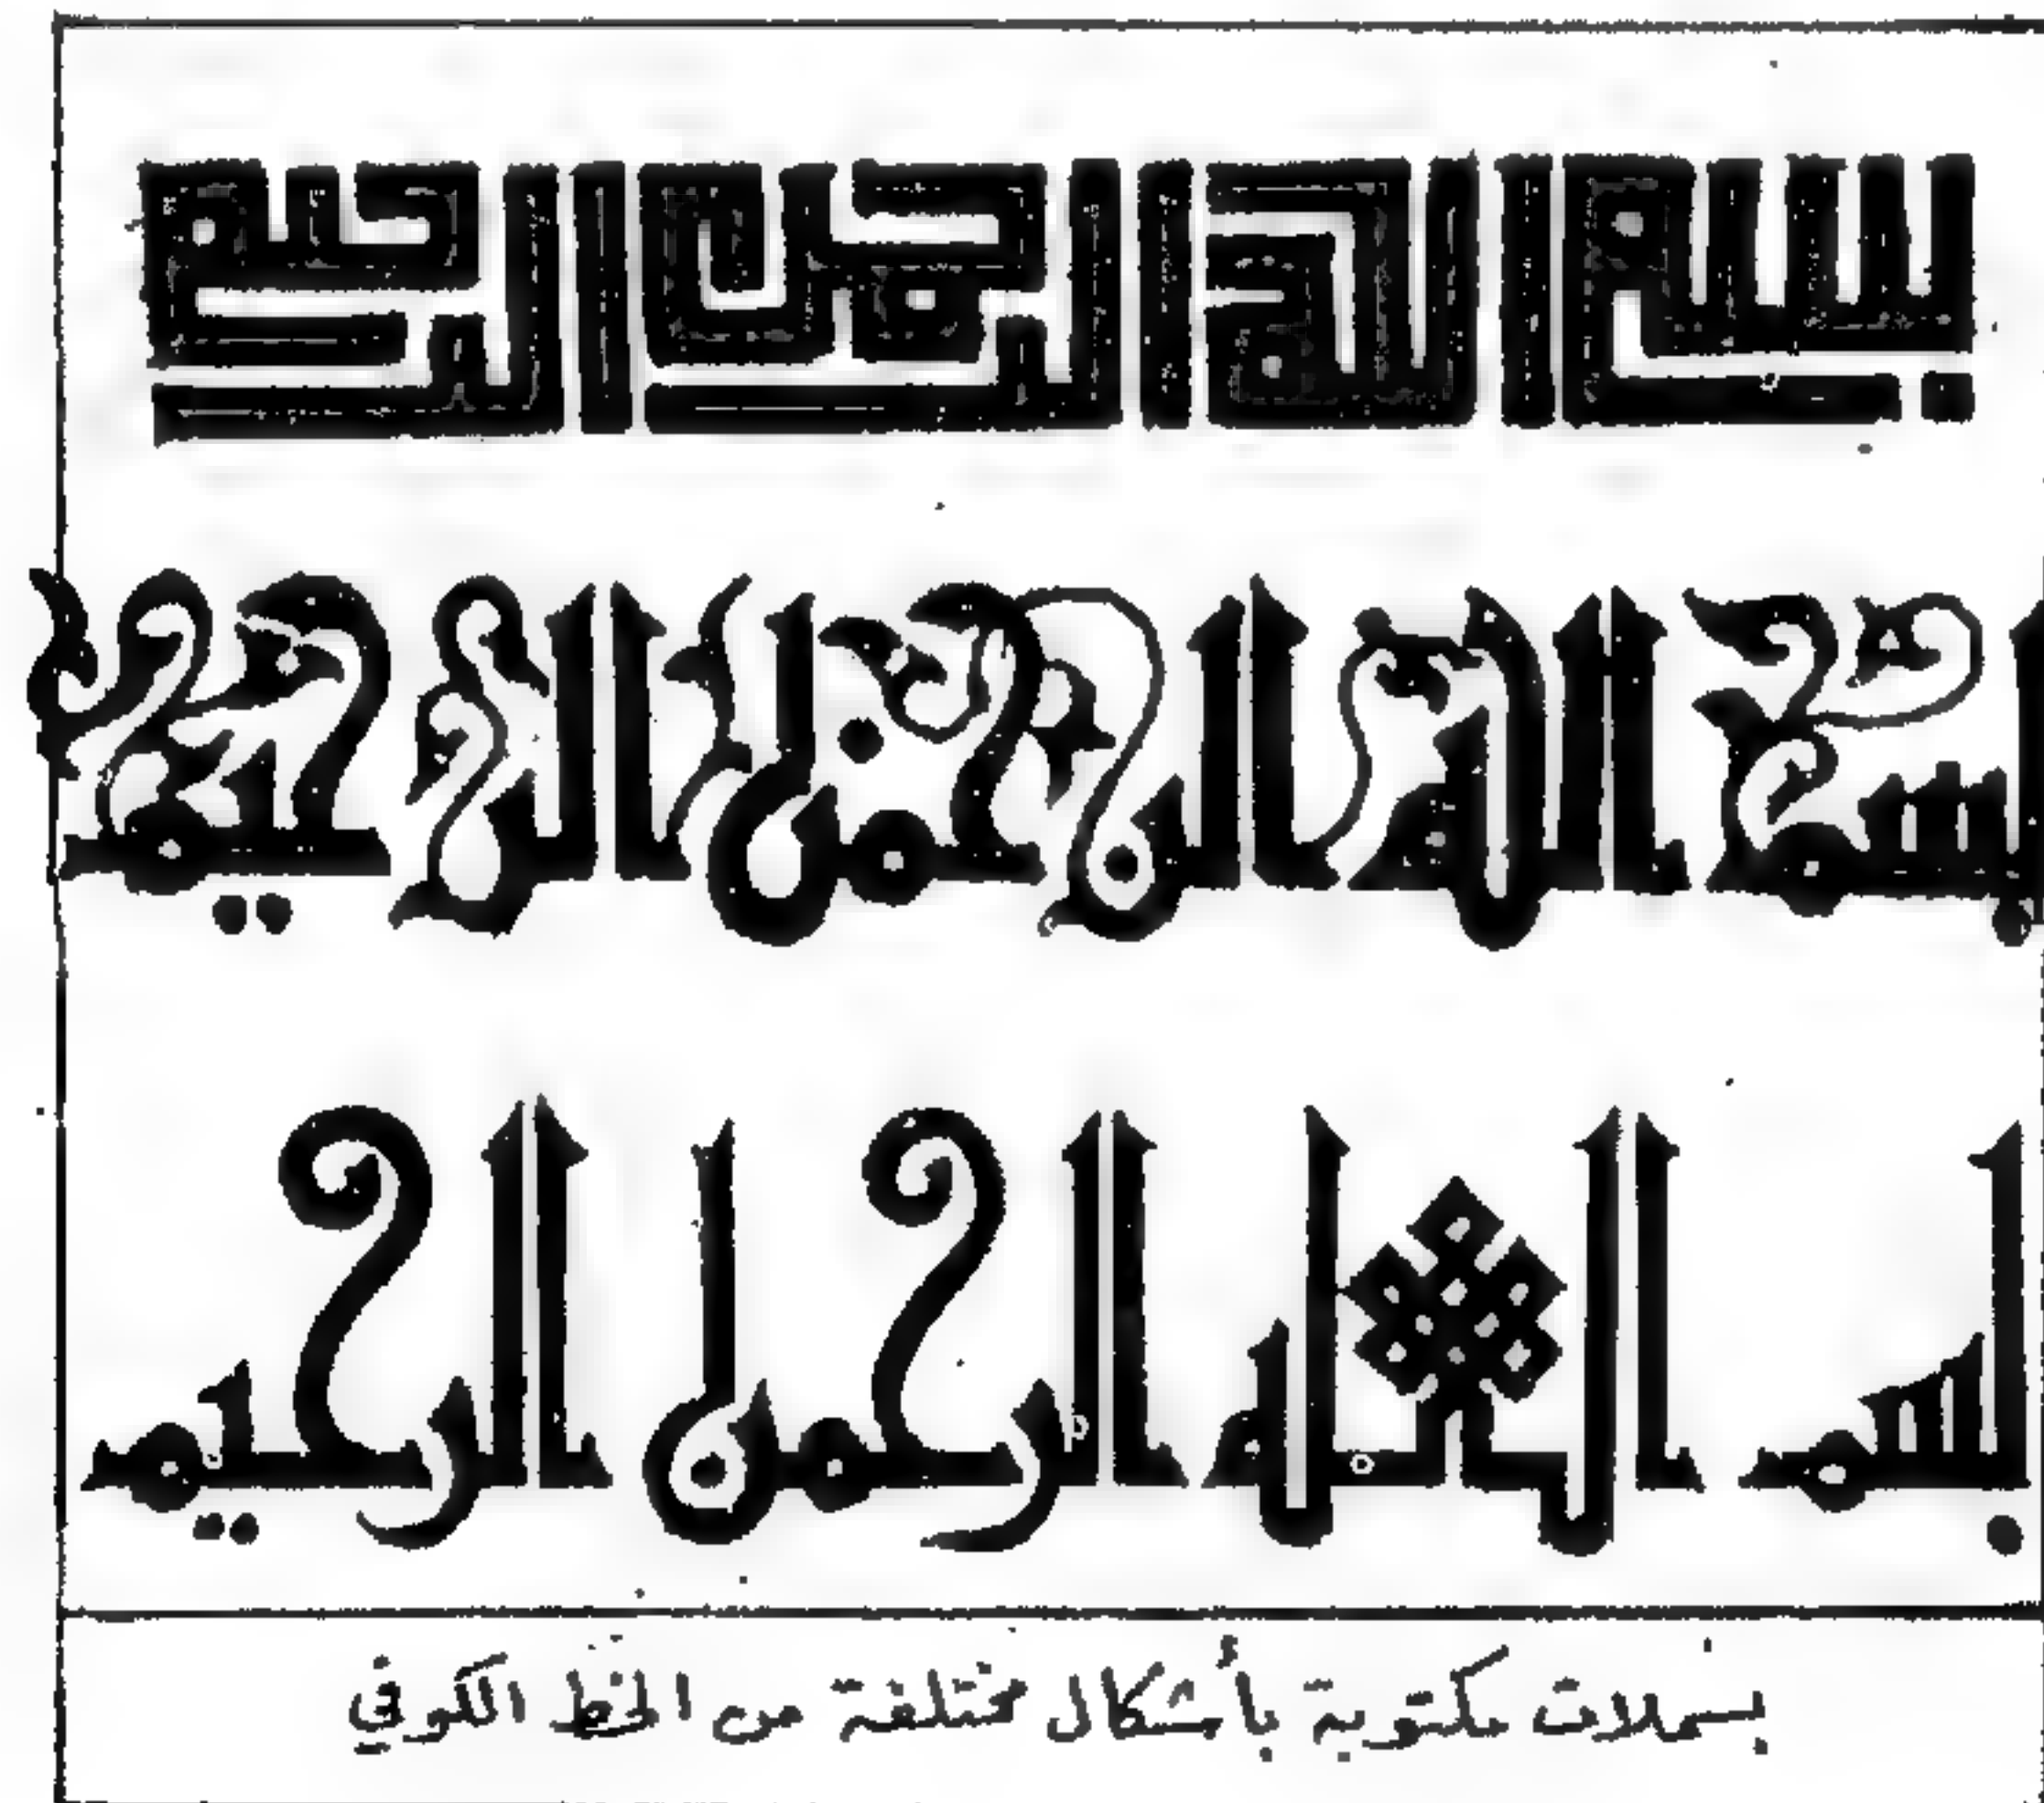 بسم الله الرحمن الرحيم
بسم الله الرحمن الرحيم
بسم الله الرحمن الرحيم
بسملات مكتوبة بأشكال مختلفة من الخط الكوفي